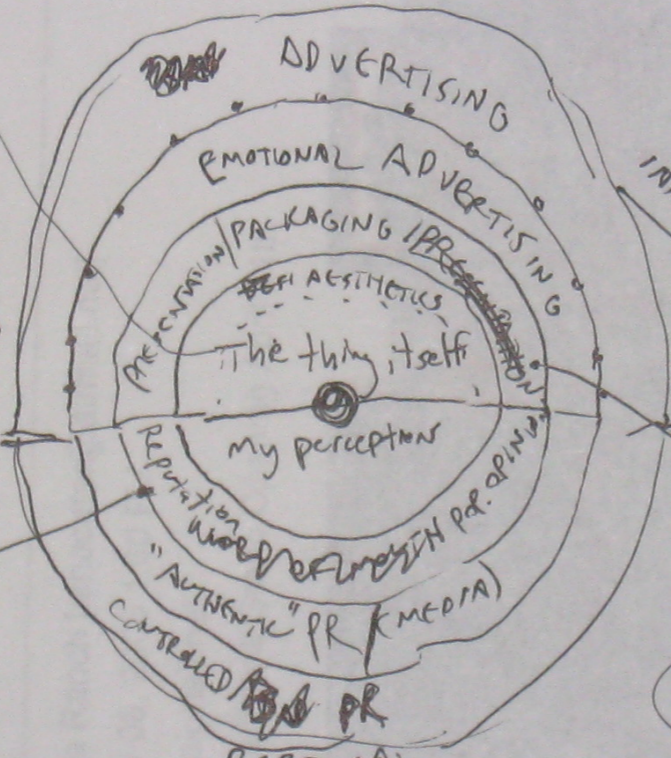 ADVERTISING
EMOTIONAL ADVERTISING
PRESENTATION/PACKAGING
AESTHETICS
The thing itself
My perception
Reputation IN POP. OPINION
"AUTHENTIC" PR (MEDIA)
CONTROLLED PR